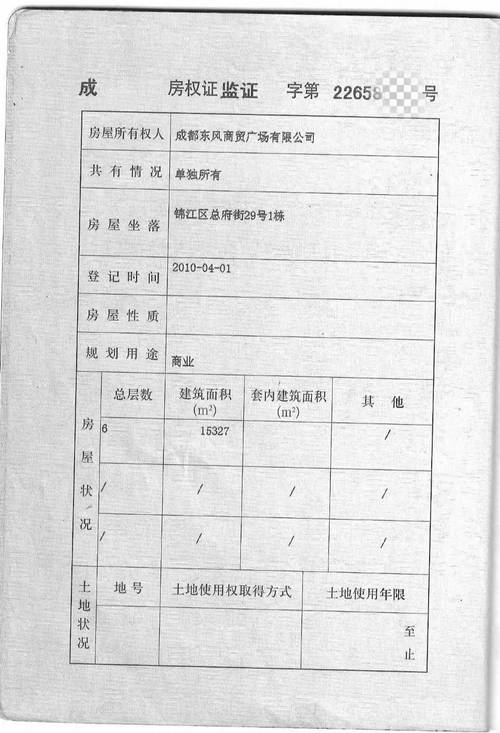 成 房权证 监证 字第 22659 号
房屋所有权人 成都东风商贸广场有限公司
共有情况 单独所有
房屋坐落 锦江区总府街29号1栋
登记时间 2010-04-01
房屋性质
规划用途 商业
房屋状况
总层数 建筑面积(m²) 套内建筑面积(m²) 其他
6 15327 /
/ / / /
/ / / /
土地状况
地号 土地使用权取得方式 土地使用年限
至
止